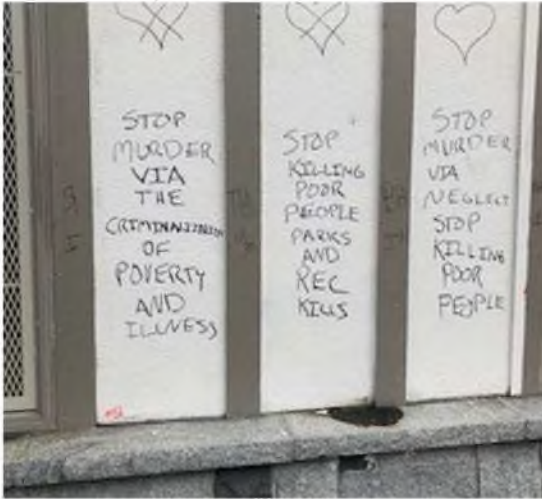 STOP
MURDER
VIA
THE
CRIMINALIZATION
OF
POVERTY
AND
ILLNESS
STOP
KILLING
POOR
PEOPLE
PARKS
AND
REC
KILLS
STOP
MURDER
VIA
NEGLECT
STOP
KILLING
POOR
PEOPLE